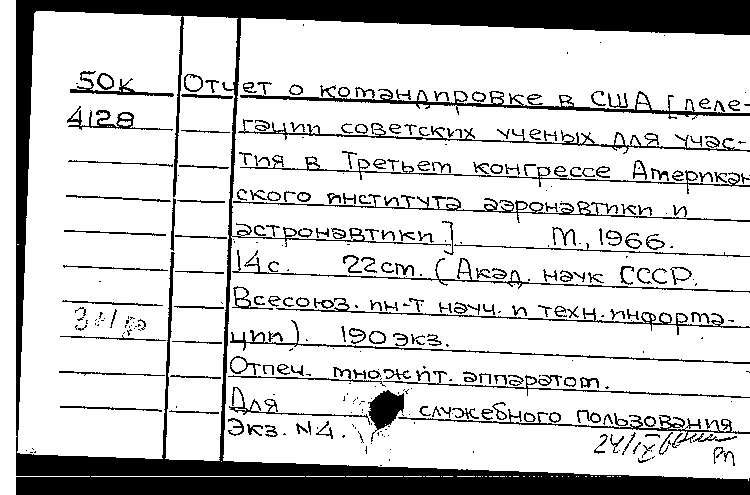 50к Отчет о командировке в США [деле-
4128 гации советских ученых для учас-
тия в Третьем конгрессе Американ
ского института аэронавтики и
астронавтики]. М., 1966.
14с. 22см. (Акад. наук СССР.
Всесоюз. ин-т науч. и техн. информа-
ции). 190 экз.
Отпеч. множит. аппаратом.
Для служебного пользования
Экз. N4.